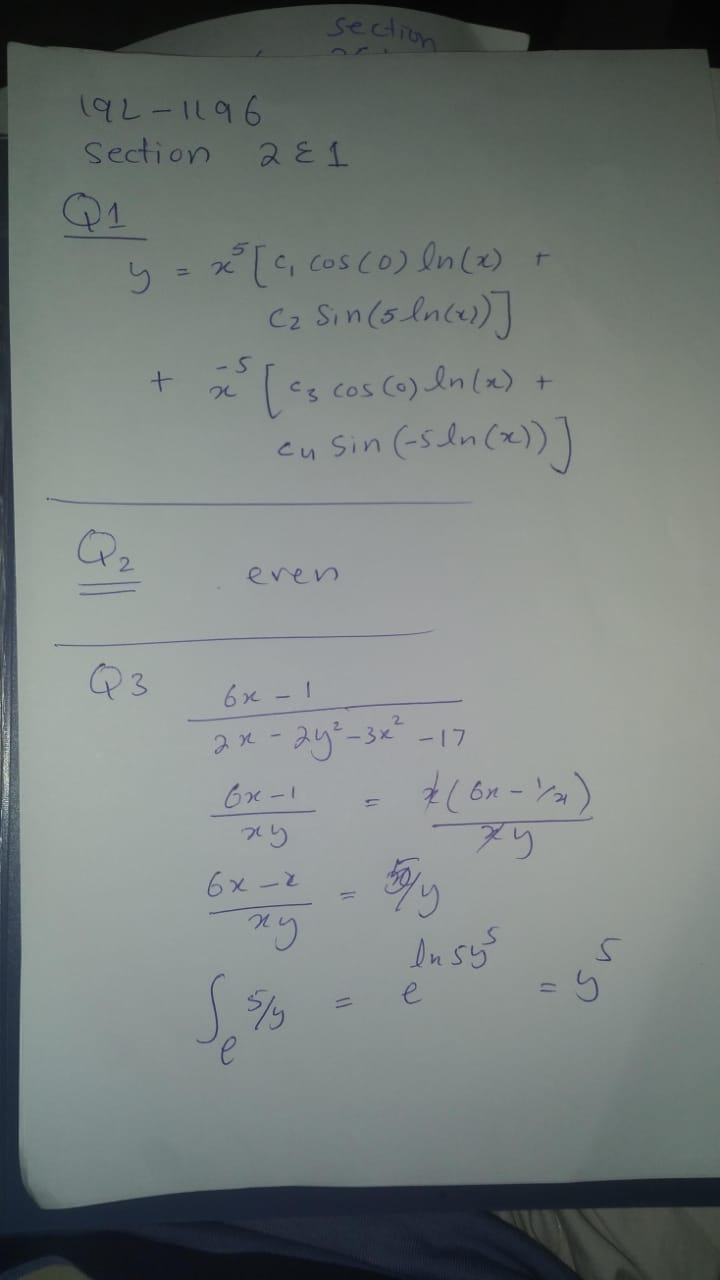 section
19L-1196
Section 2E1
Q1
y = x^5 [c₁ cos(0) ln(x) +
c₂ Sin(5 ln(x))]
+ x^-5 [c₃ cos(0) ln(x) +
c₄ Sin(-5 ln(x))]
Q₂ even
Q3
6x - 1
2x - 2y² - 3x² - 17
6x-1 / xy = x(6x - 1/x) / xy
6x - x / xy = 5/y
∫e 5/y = e^ln5y^5 = y^5